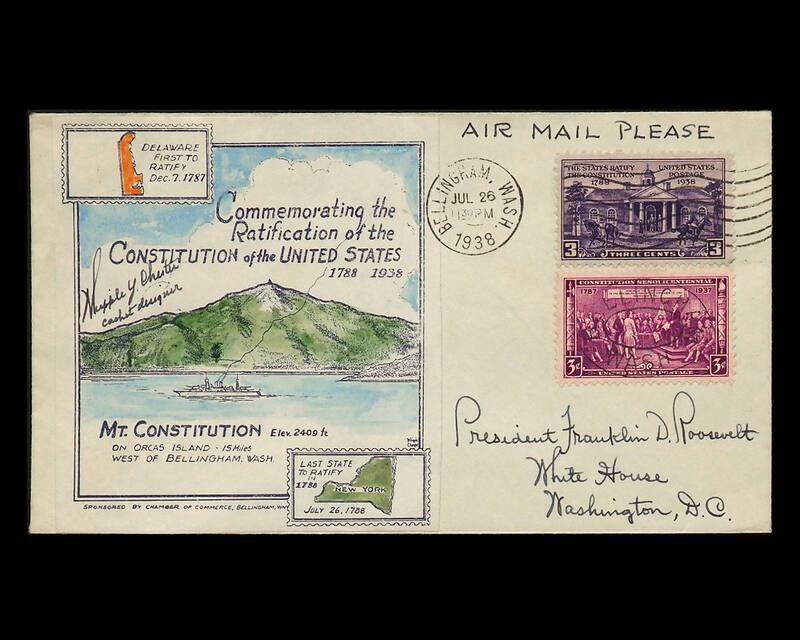 DELAWARE
FIRST TO
RATIFY
DEC. 7, 1787
Commemorating the
Ratification of the
CONSTITUTION of the UNITED STATES
1788 1938
Chester
cachet designer
MT. CONSTITUTION Elev. 2409 ft
ON ORCAS ISLAND - 15 Miles
WEST OF BELLINGHAM, WASH.
LAST STATE
TO RATIFY
IN
1788
NEW YORK
JULY 26, 1788
SPONSORED BY CHAMBER OF COMMERCE, BELLINGHAM, WN
AIR MAIL PLEASE
BELLINGHAM, WASH.
JUL 26
PM
1938
THE STATES RATIFY UNITED STATES
THE CONSTITUTION POSTAGE
1788 1938
3 THREE CENTS 3
CONSTITUTION SESQUICENTENNIAL
1787 1937
3¢ UNITED STATES POSTAGE 3¢
President Franklin D. Roosevelt
White House
Washington, D.C.